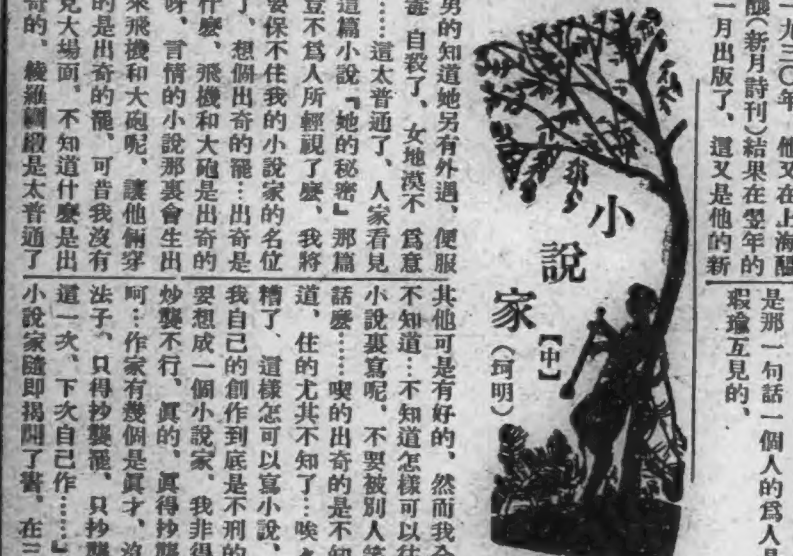 一九三〇年、他又在上海醞
釀(新月詩刊)結果在翌年的
一月出版了、這又是他的新
是那一句話一個人的爲人是
瑕瑜互見的、
小說家
【中】
(珂明)
男的知道她另有外遇、便服
毒 自殺了、女地漠不 爲意
……這太普通了、人家看見
這篇小說『她的秘密』那篇
豈不爲人所輕視了麽、我將
要保不住我的小說家的名位
了、想個出奇的罷…出奇是
什麽、飛機和大砲是出奇的
呀、言情的小說那裏會生出
來飛機和大砲呢、讓他倆穿
的是出奇的罷、可昔我沒有
見大場面、不知道什麽是出
奇的、綾羅綢緞是太普通了
其他可是有好的、然而我
不知道…不知道怎樣可以往
小說裏寫呢、不要被別人笑
話麽……喫的出奇的是不知
道、住的尤其不知了…唉、
糟了、這樣怎可以寫小說、
我自己的創作到底是不刑的
要想成一個小說家、我非得
炒襲不行、眞的、眞得抄襲
呵…作家有幾個是眞才、沒
法子、只得抄襲罷、只抄襲
這一次、下次自己作……』
小說家隨即揭開了書、在三